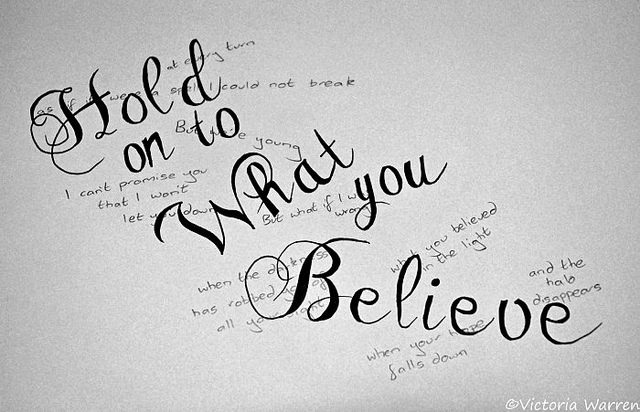 Hold
on to
What you
Believe
at every turn
as if it were a spell I could not break
But young
I can't promise you
that I won't
let you down
But what if I
wrong
when the darkness
has robbed you of
all your sight
what you believed
in the light
and the
halo
disappears
when your hope
falls down
©Victoria Warren